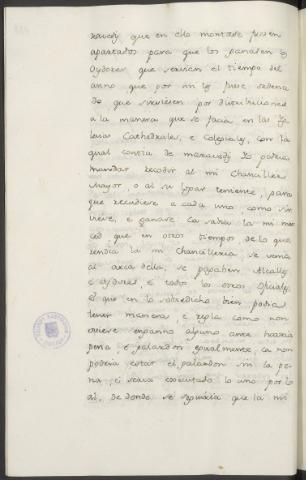 que en ello montare fuesen
apartados para que los ganasen los
Oydores, que servien el tiempo del
año que por mi les fuese ordena
do que sirviesen por distribucion
a la manera que se facia en las Ig
lesias Cathedrales, e Colegiales, con la
qual contia de maravedis lo podria
mandar recodir al mi Chanciller
Mayor, o al su Lugar teniente, para
que recudiese a cada uno como sir
viese, e ganase. Ca sabia la mi mer
ced que en otros tiempos, de lo que
rendia la mi Chancilleria, se venia
al arca della, se pagaban Alcalles
e Oydores, e todos los otros Oficiales
E que en lo sobredicho bien podia
tener manera, e regla como non
oviese engaño alguno ante habria
pena, e galardon egualmente, ca non
podria estar el galardon sin la pe
na, e seria executado lo uno por lo
al, de donde se seguiria que la mi